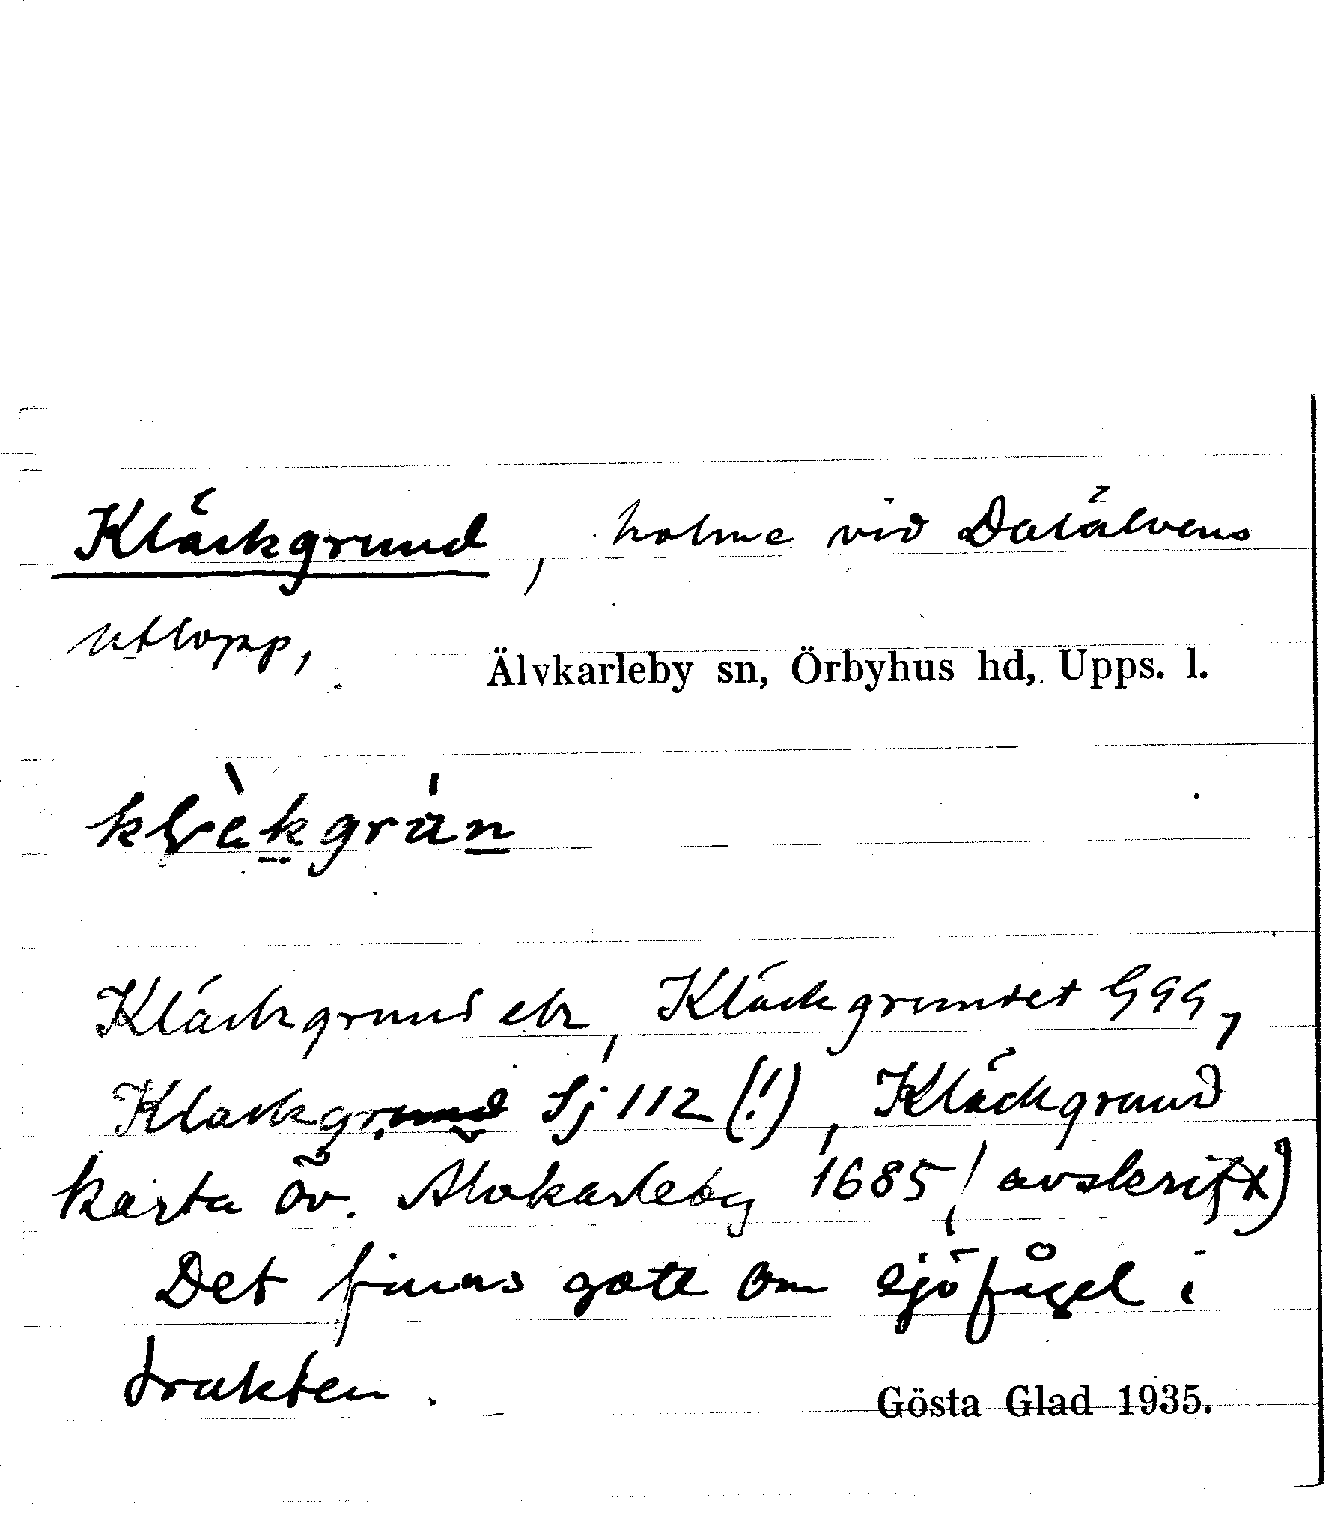 Kläckgrund, holme vid Dalälvens
utlopp,
Älvkarleby sn, Örbyhus hd, Upps. l.
klèkgrún
Kläckgrund ek, Kläckgrundet GGG,
Klackgrund Sj 112 (!), Kläckgrund
karta öv. Älvkarleby 1685 (avskrift)
Det finns gott om sjöfågel i
trakten.
Gösta Glad 1935.